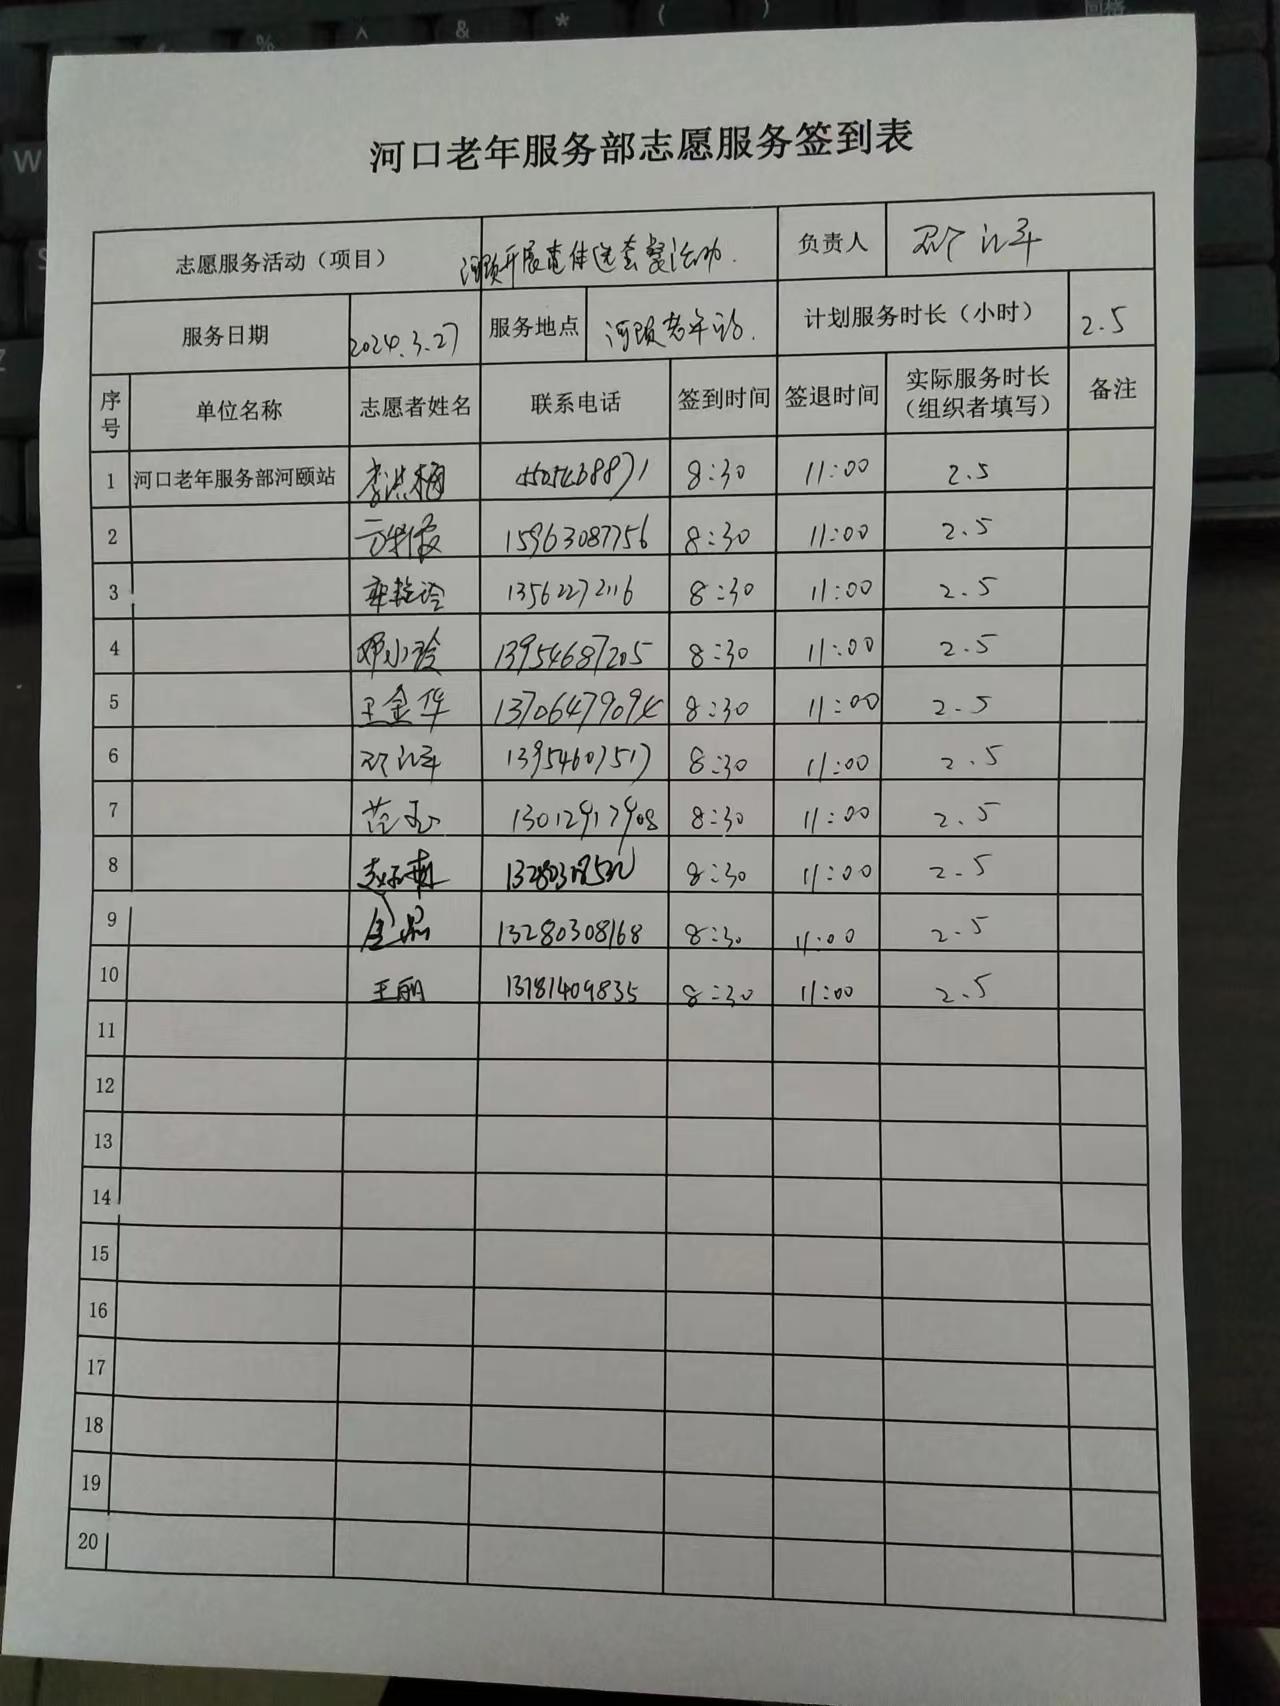 河口老年服务部志愿服务签到表
志愿服务活动（项目） 河颐开展查体选套餐活动. 负责人
服务日期 2024.3.27 服务地点 河颐老年站. 计划服务时长（小时） 2.5
序号 单位名称 志愿者姓名 联系电话 签到时间 签退时间 实际服务时长（组织者填写） 备注
1 河口老年服务部河颐站 李洪梅 8:30 11:00 2.5
2 15963087756 8:30 11:00 2.5
3 13562272116 8:30 11:00 2.5
4 邓小玲 13954687205 8:30 11:00 2.5
5 王金华 8:30 11:00 2.5
6 13954607517 8:30 11:00 2.5
7 范玉 13012917908 8:30 11:00 2.5
8 8:30 11:00 2.5
9 13280308168 8:30 11:00 2.5
10 王丽 13781409835 8:30 11:00 2.5
11
12
13
14
15
16
17
18
19
20